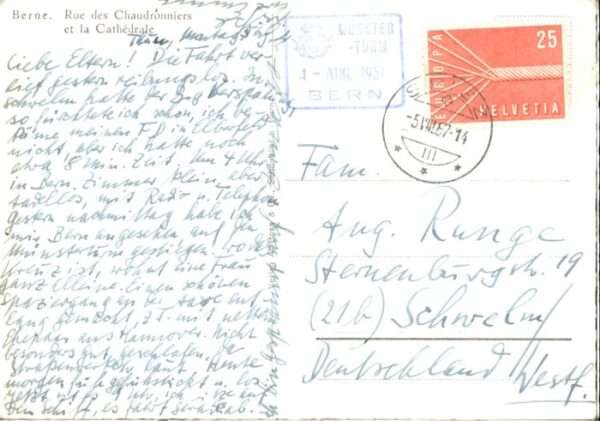 Berne. Rue des Chaudronniers
et la Cathédrale
Thun, Montag
Liebe Eltern! Die Fahrt ver-
lief gestern reibungslos. In
Schwelm hatte der Zug Verspätung
so fürchtete ich schon, ich be-
käme meinen FD in Elberfeld
nicht, aber ich hatte noch
etwa 8 min. Zeit. Um 4 Uhr
in Bern. Zimmer klein, aber
tadellos, mit Radio u. Telephon
gestern nachmittag habe ich
mir Bern angesehen auf den
Münsterturm gestiegen. wo
wohnt eine Frau
ganz alleine. Einen schönen
Spaziergang an der Aare ent-
lang gemacht, z.T. mit nettem
Ehepaar aus Hannover. Nicht
besonders gut geschlafen, da
Straßenverkehr laut. Heute
morgen früh gefrühstückt u. los
jetzt ist es Uhr, ich sitze auf
dem Schiff, es fährt gerade ab.
MÜNSTER
-TURM
- AUG. 1957
BERN
-5.VIII.57-14
III
25
EUROPA
HELVETIA
Fam.
Aug. Runge
Sternenburgstr. 19
(21b) Schwelm/
Deutschland Westf.